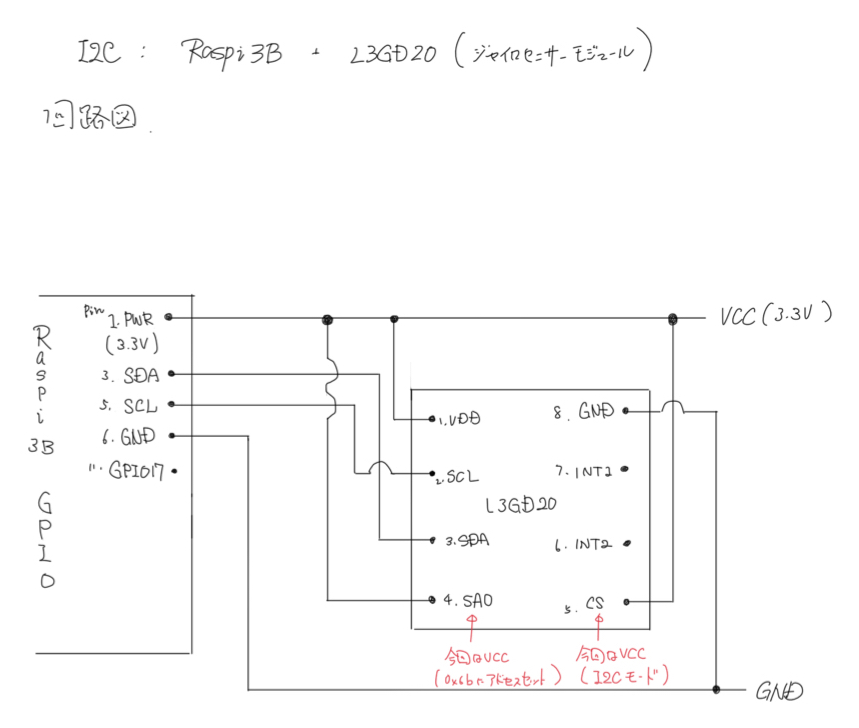 I2C : Raspi3B + L3GD20 (ジャイロセンサーモジュール)
回路図.
Raspi 3B GPIO
Pin 1. PWR
(3.3V)
3. SDA
5. SCL
6. GND
11. GPIO17
VCC (3.3V)
1. VDD
2. SCL
3. SDA
4. SAO
L3GD20
8. GND
7. INT1
6. INT2
5. CS
今回はVCC
(0x6bにアドレスセット)
今回はVCC
(I2Cモード)
GND